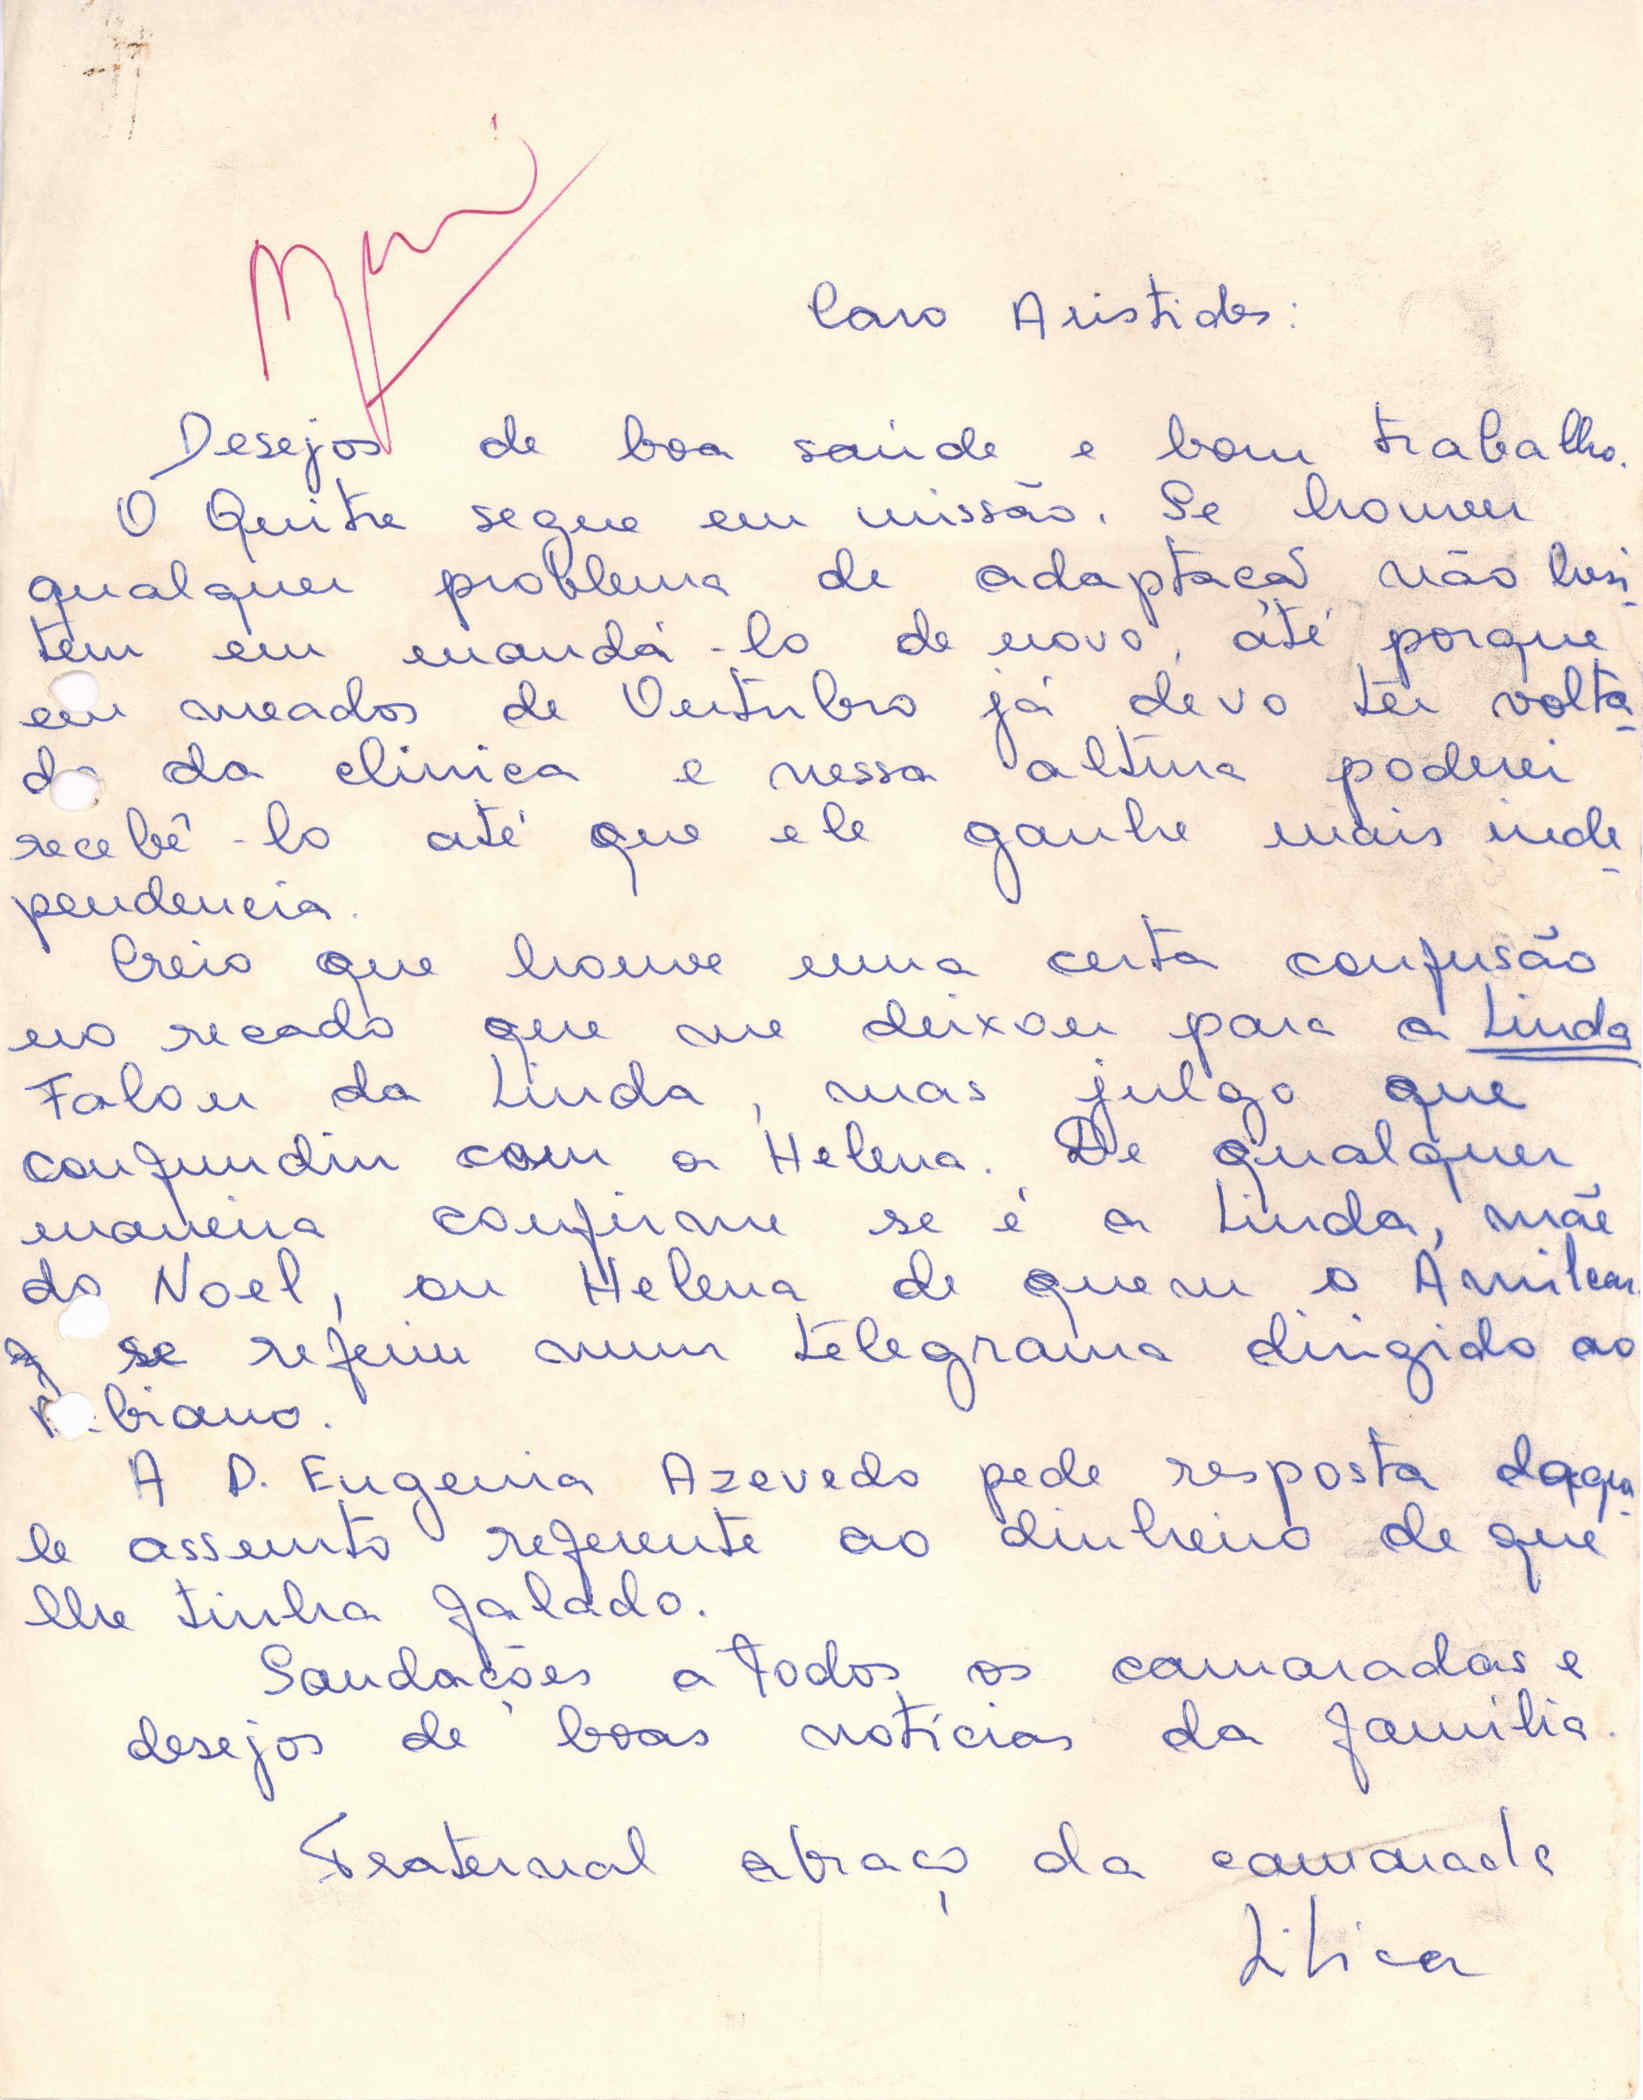 Caro Aristides:
Desejos de boa saúde e bom trabalho.
O Quitre segue em missão. Se houver
qualquer problema de adaptaçã não hesi-
tem em mandá-lo de novo, até porque
em meados de Outubro já devo ter volta-
do da clinica e nessa altura poderei
recebê-lo até que ele ganhe mais inde-
pendencia.
Creio que houve uma certa confusão
no recado que me deixou para a Linda
Falou da Linda, mas julgo que
confundiu com a Helena. De qualquer
maneira confirme se é a Linda, mãe
do Noel, ou Helena de quem o Amilcar
se referiu num telegrama dirigido ao
biano.
A D. Eugenia Azevedo pede resposta daque-
le assunto referente ao dinheiro de que
lhe tinha falado.
Saudações a todos os camaradas e
desejos de boas notícias da família.
Fraternal abraço da camarada
Lilica